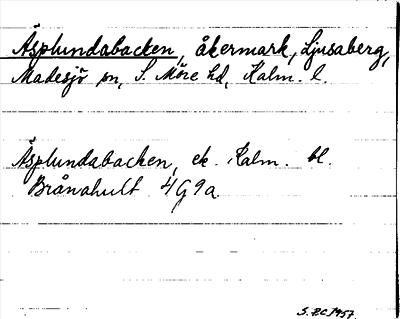 Äsplundabacken, åkermark, Ljusaberg,
Madesjö sn, S. Möre hd, Kalm. l.
Äsplundabacken, ek. Kalm. bl.
Brånahult 4G9a
1957